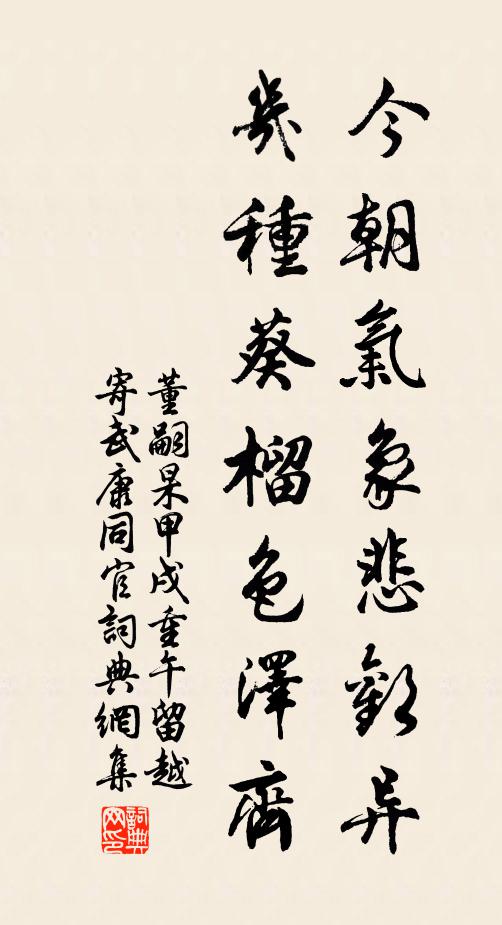 今朝氣象悲歡异
幾種葵榴色澤齊
董嗣杲甲戌重午留越
寄武康同官詞典網集
詞典網印